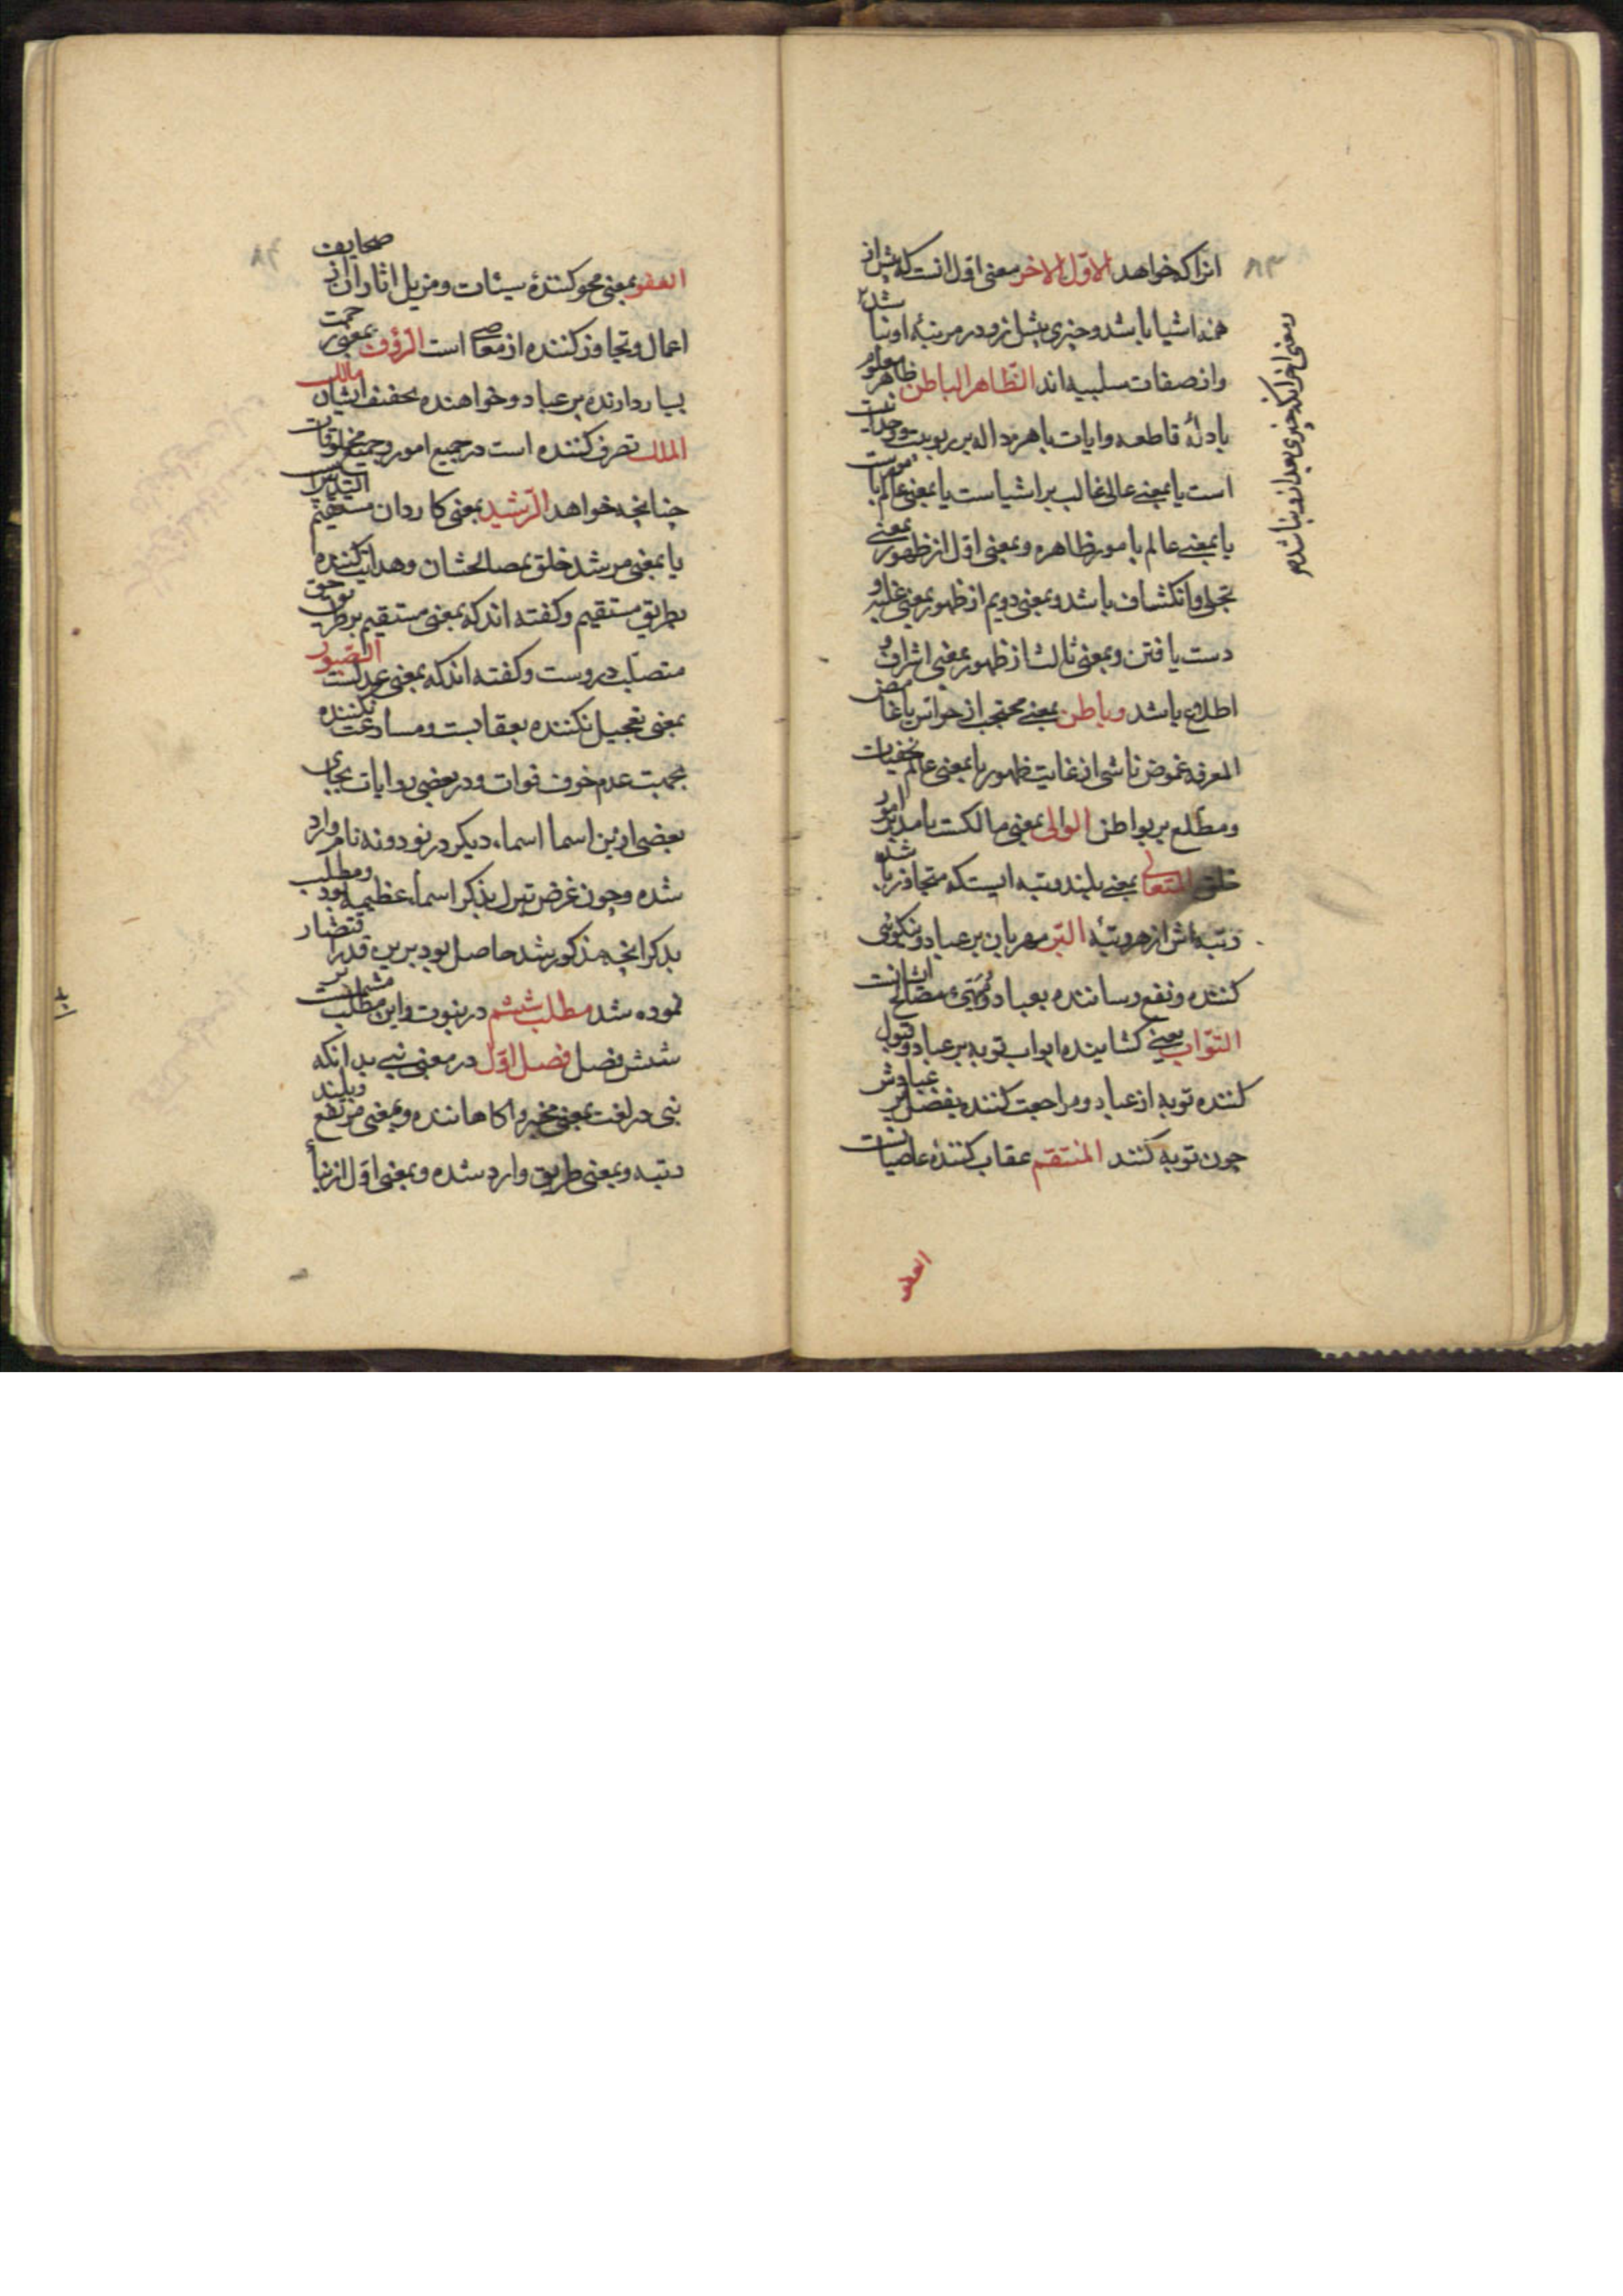 ۸۳
انرا که خواهد الاول الاخر معنی اول انست که پیش از
همه اشیا باشد و چیزی پیش ازو در مرتبهٔ او نباشد
و معنی اخر انکه چیزی بعد ازو نباشد
و از صفات سلبیه اند الظاهر الباطن ظاهر معلوم
بادلهٔ قاطعه و ایات باهره داله بر ربوبیت و وحدانیت
است یا بمعنی عالی غالب بر اشیاست یا بمعنی عالم با
یا بمعنی عالم بامور ظاهره و بمعنی اول از ظهور بمعنی
تجلی و انکشاف باشد و بمعنی دویم از ظهور بمعنی غلبه و
دست یافتن و بمعنی ثالث از ظهور بمعنی اشراف و
اطلاع باشد و باطن بمعنی محتجب از حواس یا غامض
المعرفه غموض ناشی از غایت ظهور یا بمعنی عالم بخفیات
و مطلع بر بواطن الوالی بمعنی مالکست یا مدبر امور
خلق المتعالی بمعنی بلند رتبه ایستکه متجاوز باشد
رتبه اش از هر رتبهٔ البر مهربان بر عباد و نیکوئی
کننده و نفع رساننده بعباد و مهیی مصالح ایشانست
التواب یعنی کشاینده ابواب توبه بر عباد و قبول
کننده توبه از عباد و مراجعت کننده بفضل بر عبادش
چون توبه کنند المنتقم عقاب کنندهٔ عاصیانست
العفو
۸۴
العفو بمعنی محو کنندهٔ سیئات و مزیل اثار ان از صحایف
اعمال و تجاوز کننده از معاصی است الرؤف بمعنی رحمت
بسیار دارنده بر عباد و خواهنده تخفیف ایشان مالک
الملک تصرف کننده است در جمیع امور و جمیع مخلوقات
چنانچه خواهد الرشید بمعنی کاردان مستقیم التدبیر
یا بمعنی مرشد خلق بمصالحشان و هدایت کننده
بطریق مستقیم و کفته اند که بمعنی مستقیم بر طریق حق
متصلب دروست و کفته اند که بمعنی عدلست الصبور
بمعنی تعجیل نکننده بعقابست و مسارعت نکننده
بجهت عدم خوف فوات و در بعضی روایات بجای
بعضی ازین اسما اسماء دیکر در نود و نه نام وارد
شده و چون غرض تبرک بذکر اسماء عظیمه بود و مطلب
بذکر انچه مذکور شد حاصل بود برین قدر اقتصار
نموده شد مطلب ششم در نبوت و این مطلب مشتملست بر
شش فصل فصل اول در معنی نبی بدانکه
نبی در لغت بمعنی مخبر و اکاهاننده و بمعنی مرتفع و بلند
رتبه و بمعنی طریق وارد شده و بمعنی اول از نبأ